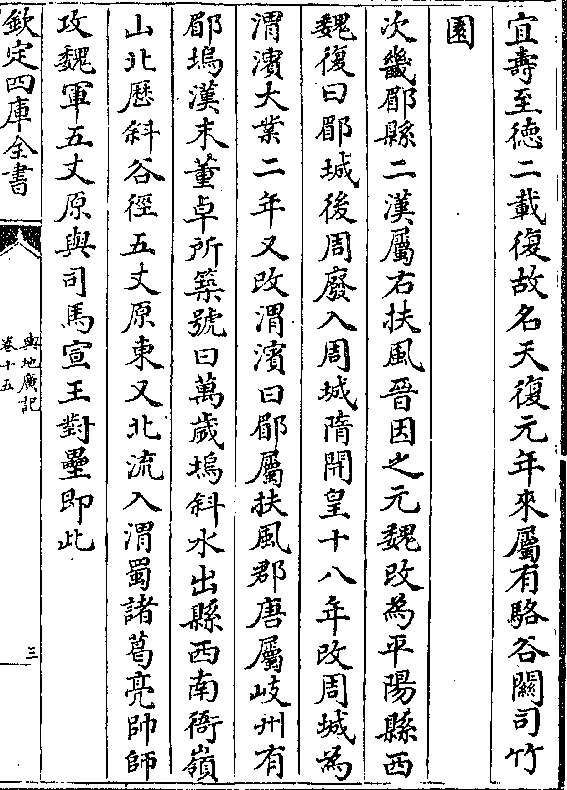 宜壽至德二載復故名天復元年來屬有駱谷關司竹
園
次畿郿縣二漢屬右扶風晉因之元魏改為平陽縣西
魏復曰郿城後周廢入周城隋開皇十八年改周城為
渭濱大業二年又改渭濱曰郿屬扶風郡唐屬岐州有
郿塢漢末董卓所築號曰萬歲塢斜水出縣西南衙嶺
山北歷斜谷徑五丈原東又北流入渭蜀諸葛亮帥師
攻魏軍五丈原與司馬宣王對壘即此
欽定四庫全書
輿地廣記
卷十五
三